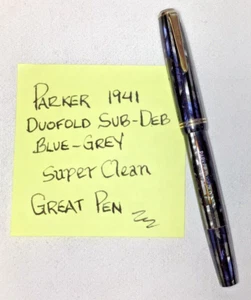 PARKER 1941
DUOFOLD SUB-DEB
BLUE-GREY
Super Clean
GREAT PEN